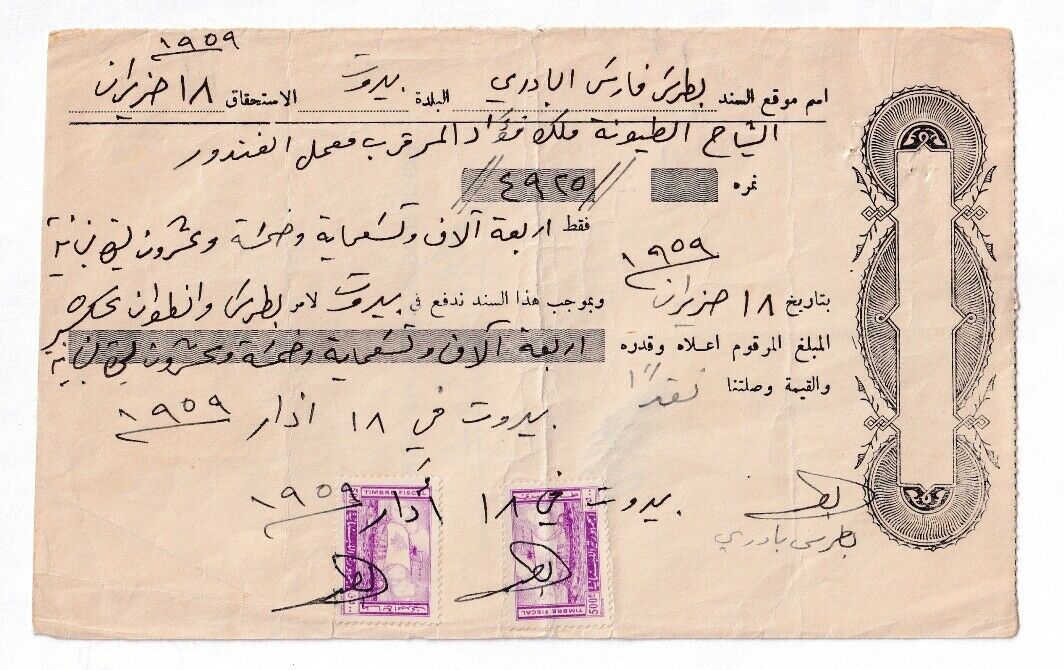 ١٩٥٩
اسم موقع السند بطرس فارس البادري البلدة بيروت الاستحقاق ١٨ حزيران
الشياح الطيونة ملك فؤاد المر قرب معمل الغندور
نمره //٤٩٢٥//
فقط اربعة آلاف وتسعماية وخمسة وعشرون ليرة لبنانية
١٩٥٩
بتاريخ ١٨ حزيران وبموجب هذا السند ندفع في بيروت لامر بطرس وانطوان
المبلغ المرقوم اعلاه وقدره اربعة آلاف وتسعماية وخمسة وعشرون ليرة لبنانية
والقيمة وصلتنا نقداً
بيروت في ١٨ اذار ١٩٥٩
بيروت في ١٨ آذار ١٩٥٩
بطرس بادري
TIMBRE FISCAL
TIMBRE FISCAL
500